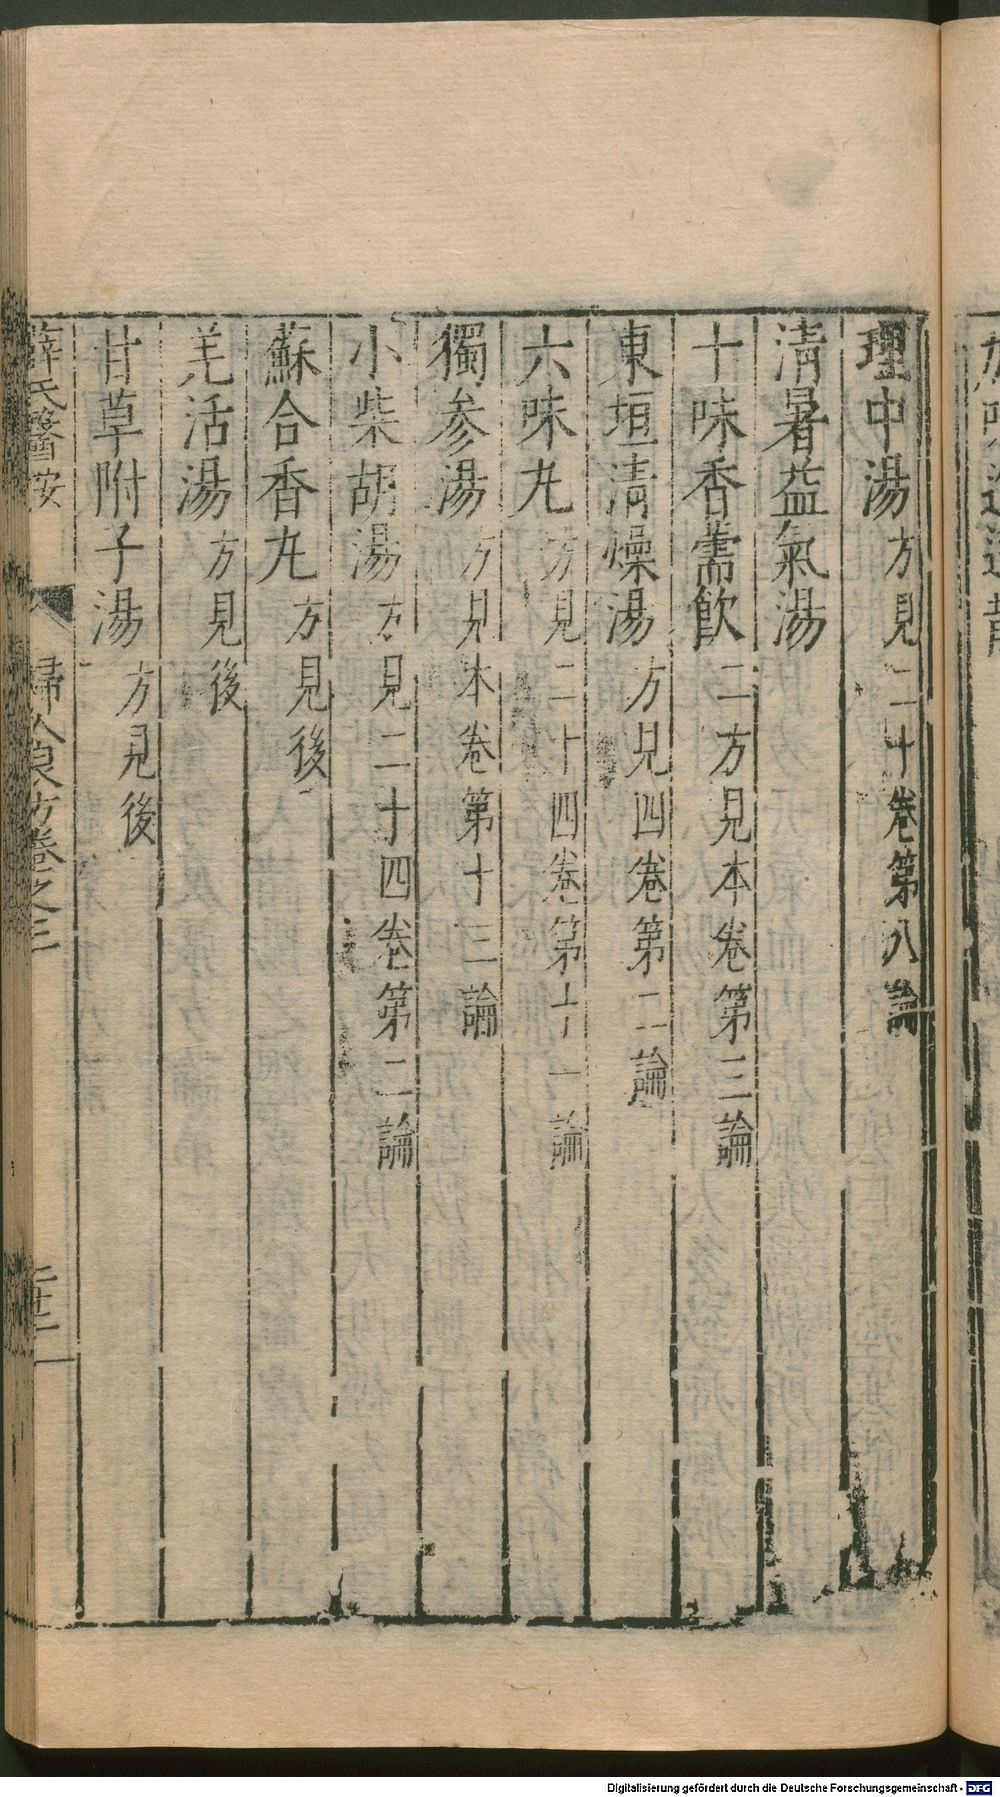 理中湯方見二十卷第八論
清暑益氣湯
十味香薷飲二方見本卷第三論
東垣清燥湯方見四卷第二論
六味丸方見二十四卷第十一論
獨參湯方見本卷第十三論
小柴胡湯方見二十四卷第二論
蘇合香丸方見後
羌活湯方見後
甘草附子湯方見後
薛氏醫按 婦人良方卷之三
Digitalisierung gefördert durch die Deutsche Forschungsgemeinschaft - DFG